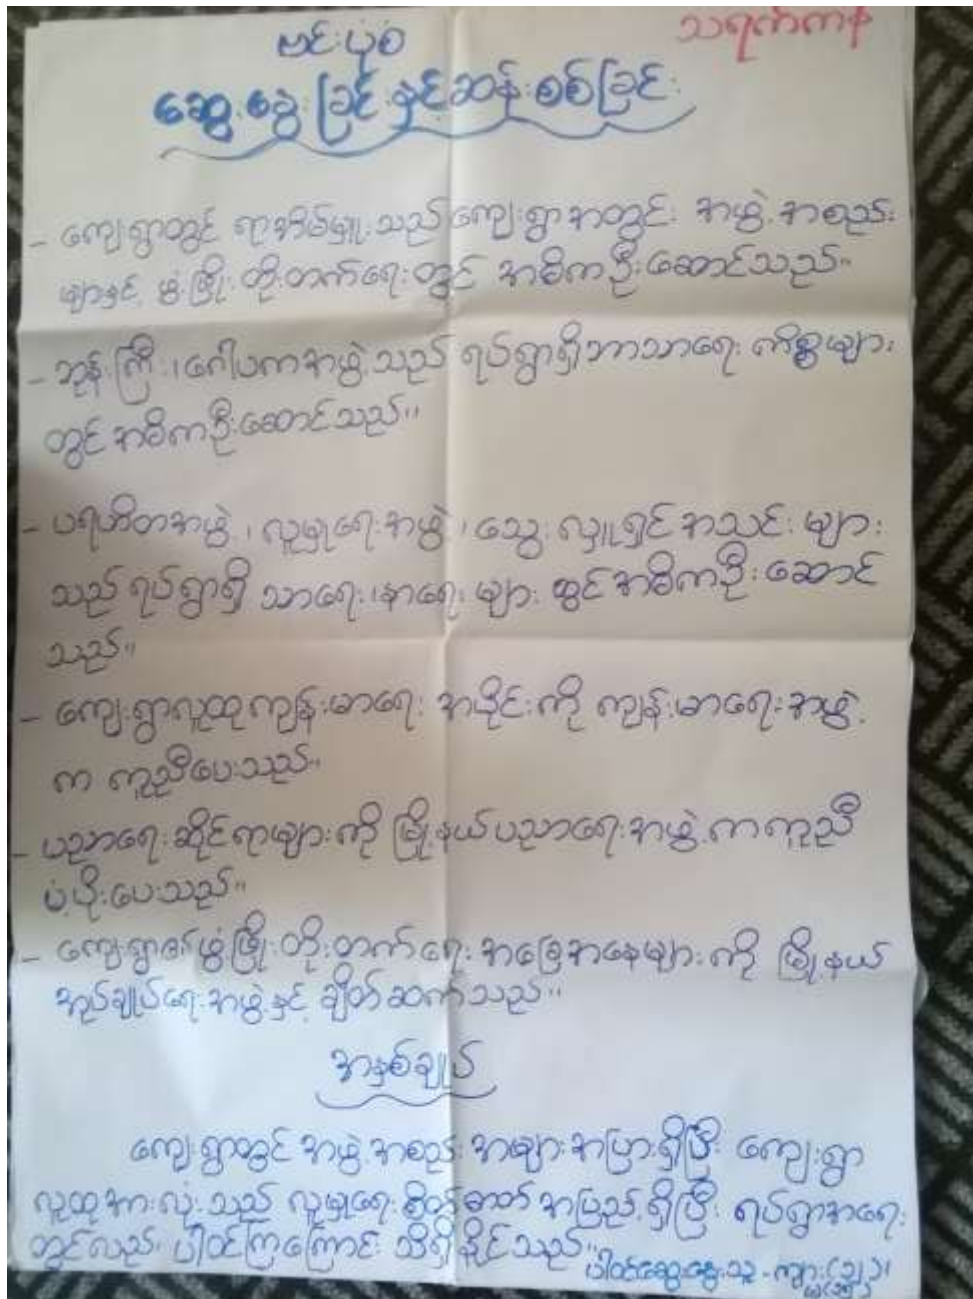 သရက်ကန်
ဗင်းပုံစံ
ဆွေးနွေးခြင်းနှင့်ဆန်းစစ်ခြင်း
- ကျေးရွာတွင် ရာအိမ်မှူးသည်ကျေးရွာအတွင်း အဖွဲ့အစည်း
များနှင့် ဖွံ့ဖြိုးတိုးတက်ရေးတွင် အဓိကဦးဆောင်သည်။
- ဘုန်းကြီး၊ ဂေါပကအဖွဲ့သည် ရပ်ရွာရှိဘာသာရေး ကိစ္စများ
တွင် အဓိကဦးဆောင်သည်။
- ပရဟိတအဖွဲ့၊ လူမှုရေးအဖွဲ့၊ သွေးလှူရှင်အသင်းများ
သည် ရပ်ရွာရှိ သာရေး၊နာရေးများ တွင်အဓိကဦးဆောင်
သည်။
- ကျေးရွာလူထုကျန်းမာရေး အပိုင်းကို ကျန်းမာရေးအဖွဲ့
က ကူညီပေးသည်။
- ပညာရေးဆိုင်ရာများကို မြို့နယ်ပညာရေးအဖွဲ့ကကူညီ
ပံ့ပိုးပေးသည်။
- ကျေးရွာ၏ဖွံ့ဖြိုးတိုးတက်ရေး အခြေအနေများကို မြို့နယ်
အုပ်ချုပ်ရေးအဖွဲ့နှင့် ချိတ်ဆက်သည်။
အနှစ်ချုပ်
ကျေးရွာတွင် အဖွဲ့အစည်း အများအပြားရှိပြီး ကျေးရွာ
လူထုအားလုံးသည် လူမှုရေးစိတ်ဓာတ် အပြည့်ရှိပြီး ရပ်ရွာအရေး
တွင်လည်း ပါဝင်ကြကြောင်း သိရှိနိုင်သည်။
ပါဝင်ဆွေးနွေးသူ - ကျား